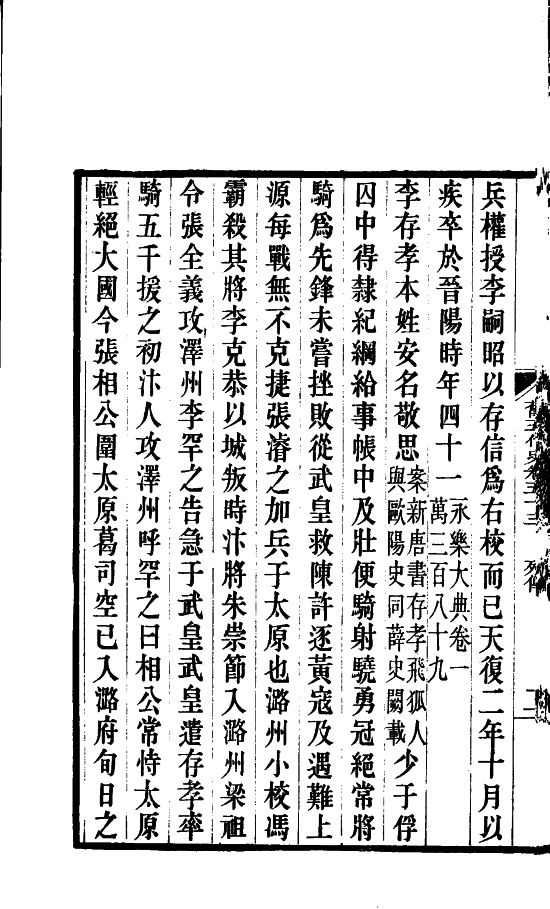 兵權授李嗣昭以存信爲右校而已天復二年十月以
疾卒於晉陽時年四十一永樂大典卷一萬三百八十九
李存孝本姓安名敬思案新唐書存孝飛狐人與歐陽史同薛史闕載少于俘
囚中得隸紀綱給事帳中及壯便騎射驍勇冠絕常將
騎爲先鋒未嘗挫敗從武皇救陳許逐黃寇及遇難上
源每戰無不克捷張濬之加兵于太原也潞州小校馮
霸殺其將李克恭以城叛時汴將朱崇節入潞州梁祖
令張全義攻澤州李罕之告急于武皇武皇遣存孝率
騎五千援之初汴人攻澤州呼罕之曰相公常恃太原
輕絕大國今張相公圍太原葛司空已入潞府旬日之